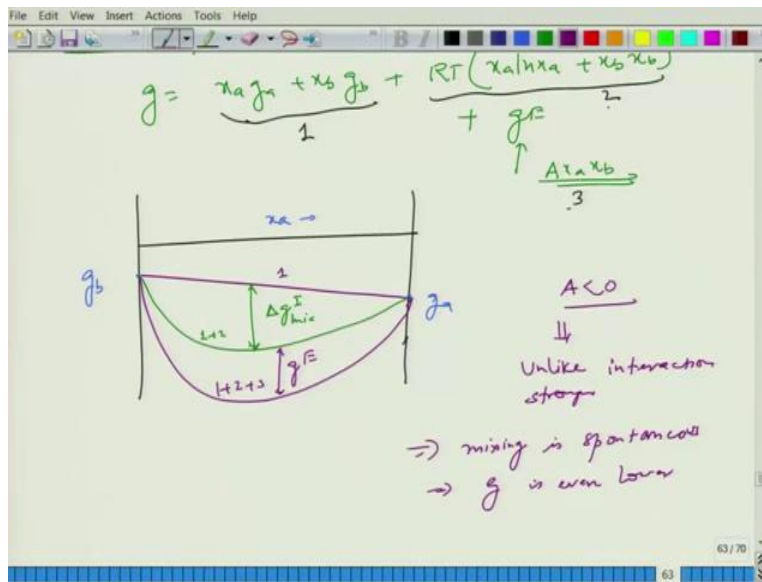 File Edit View Insert Actions Tools Help
g = xₐgₐ + x_b g_b + RT(xₐlnxₐ + x_b x_b)
1
2
+ gᴱ
↑
Axₐx_b
3
xₐ →
g_b
1
gₐ
Δgᴵmix
1+2
gᴱ
1+2+3
A<0
⇓
Unlike interaction
strong
⇒ mixing is spontaneous
→ g is even lower
63/70
63